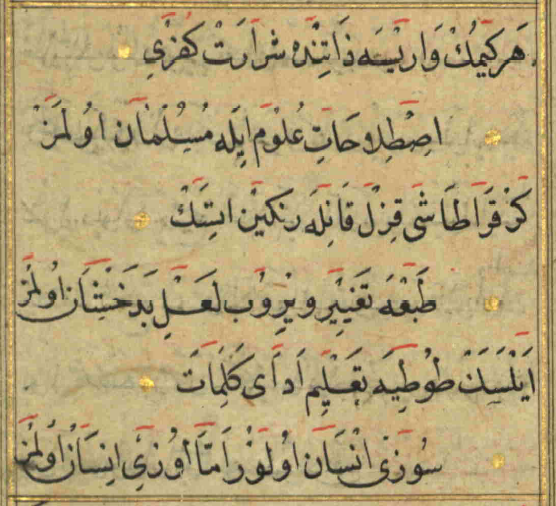 هر كيمك وار يسه ذاتنده شرارت كفري
اصطلاحات علوم ايله مسلمان اولمز
كر قرا طاشى قزل قانله رنكين اتسك
طبعه تغيير ويروب لعل بدخشان اولمز
ايلسك طوطيه تعليم اداى كلمات
سوزى انسان اولور اما اوزى انسان اولمز